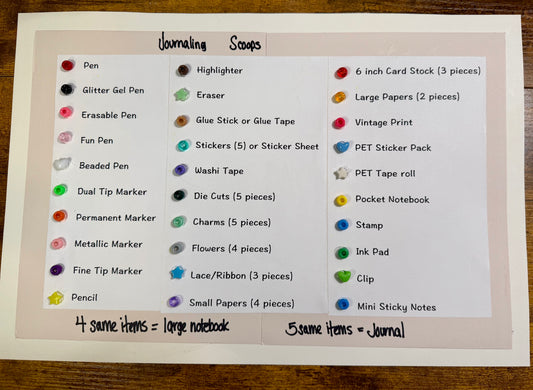 Journaling Scoops
Pen
Glitter Gel Pen
Erasable Pen
Fun Pen
Beaded Pen
Dual Tip Marker
Permanent Marker
Metallic Marker
Fine Tip Marker
Pencil
Highlighter
Eraser
Glue Stick or Glue Tape
Stickers (5) or Sticker Sheet
Washi Tape
Die Cuts (5 pieces)
Charms (5 pieces)
Flowers (4 pieces)
Lace/Ribbon (3 pieces)
Small Papers (4 pieces)
6 inch Card Stock (3 pieces)
Large Papers (2 pieces)
Vintage Print
PET Sticker Pack
PET Tape roll
Pocket Notebook
Stamp
Ink Pad
Clip
Mini Sticky Notes
4 same items = large notebook
5 same items = Journal